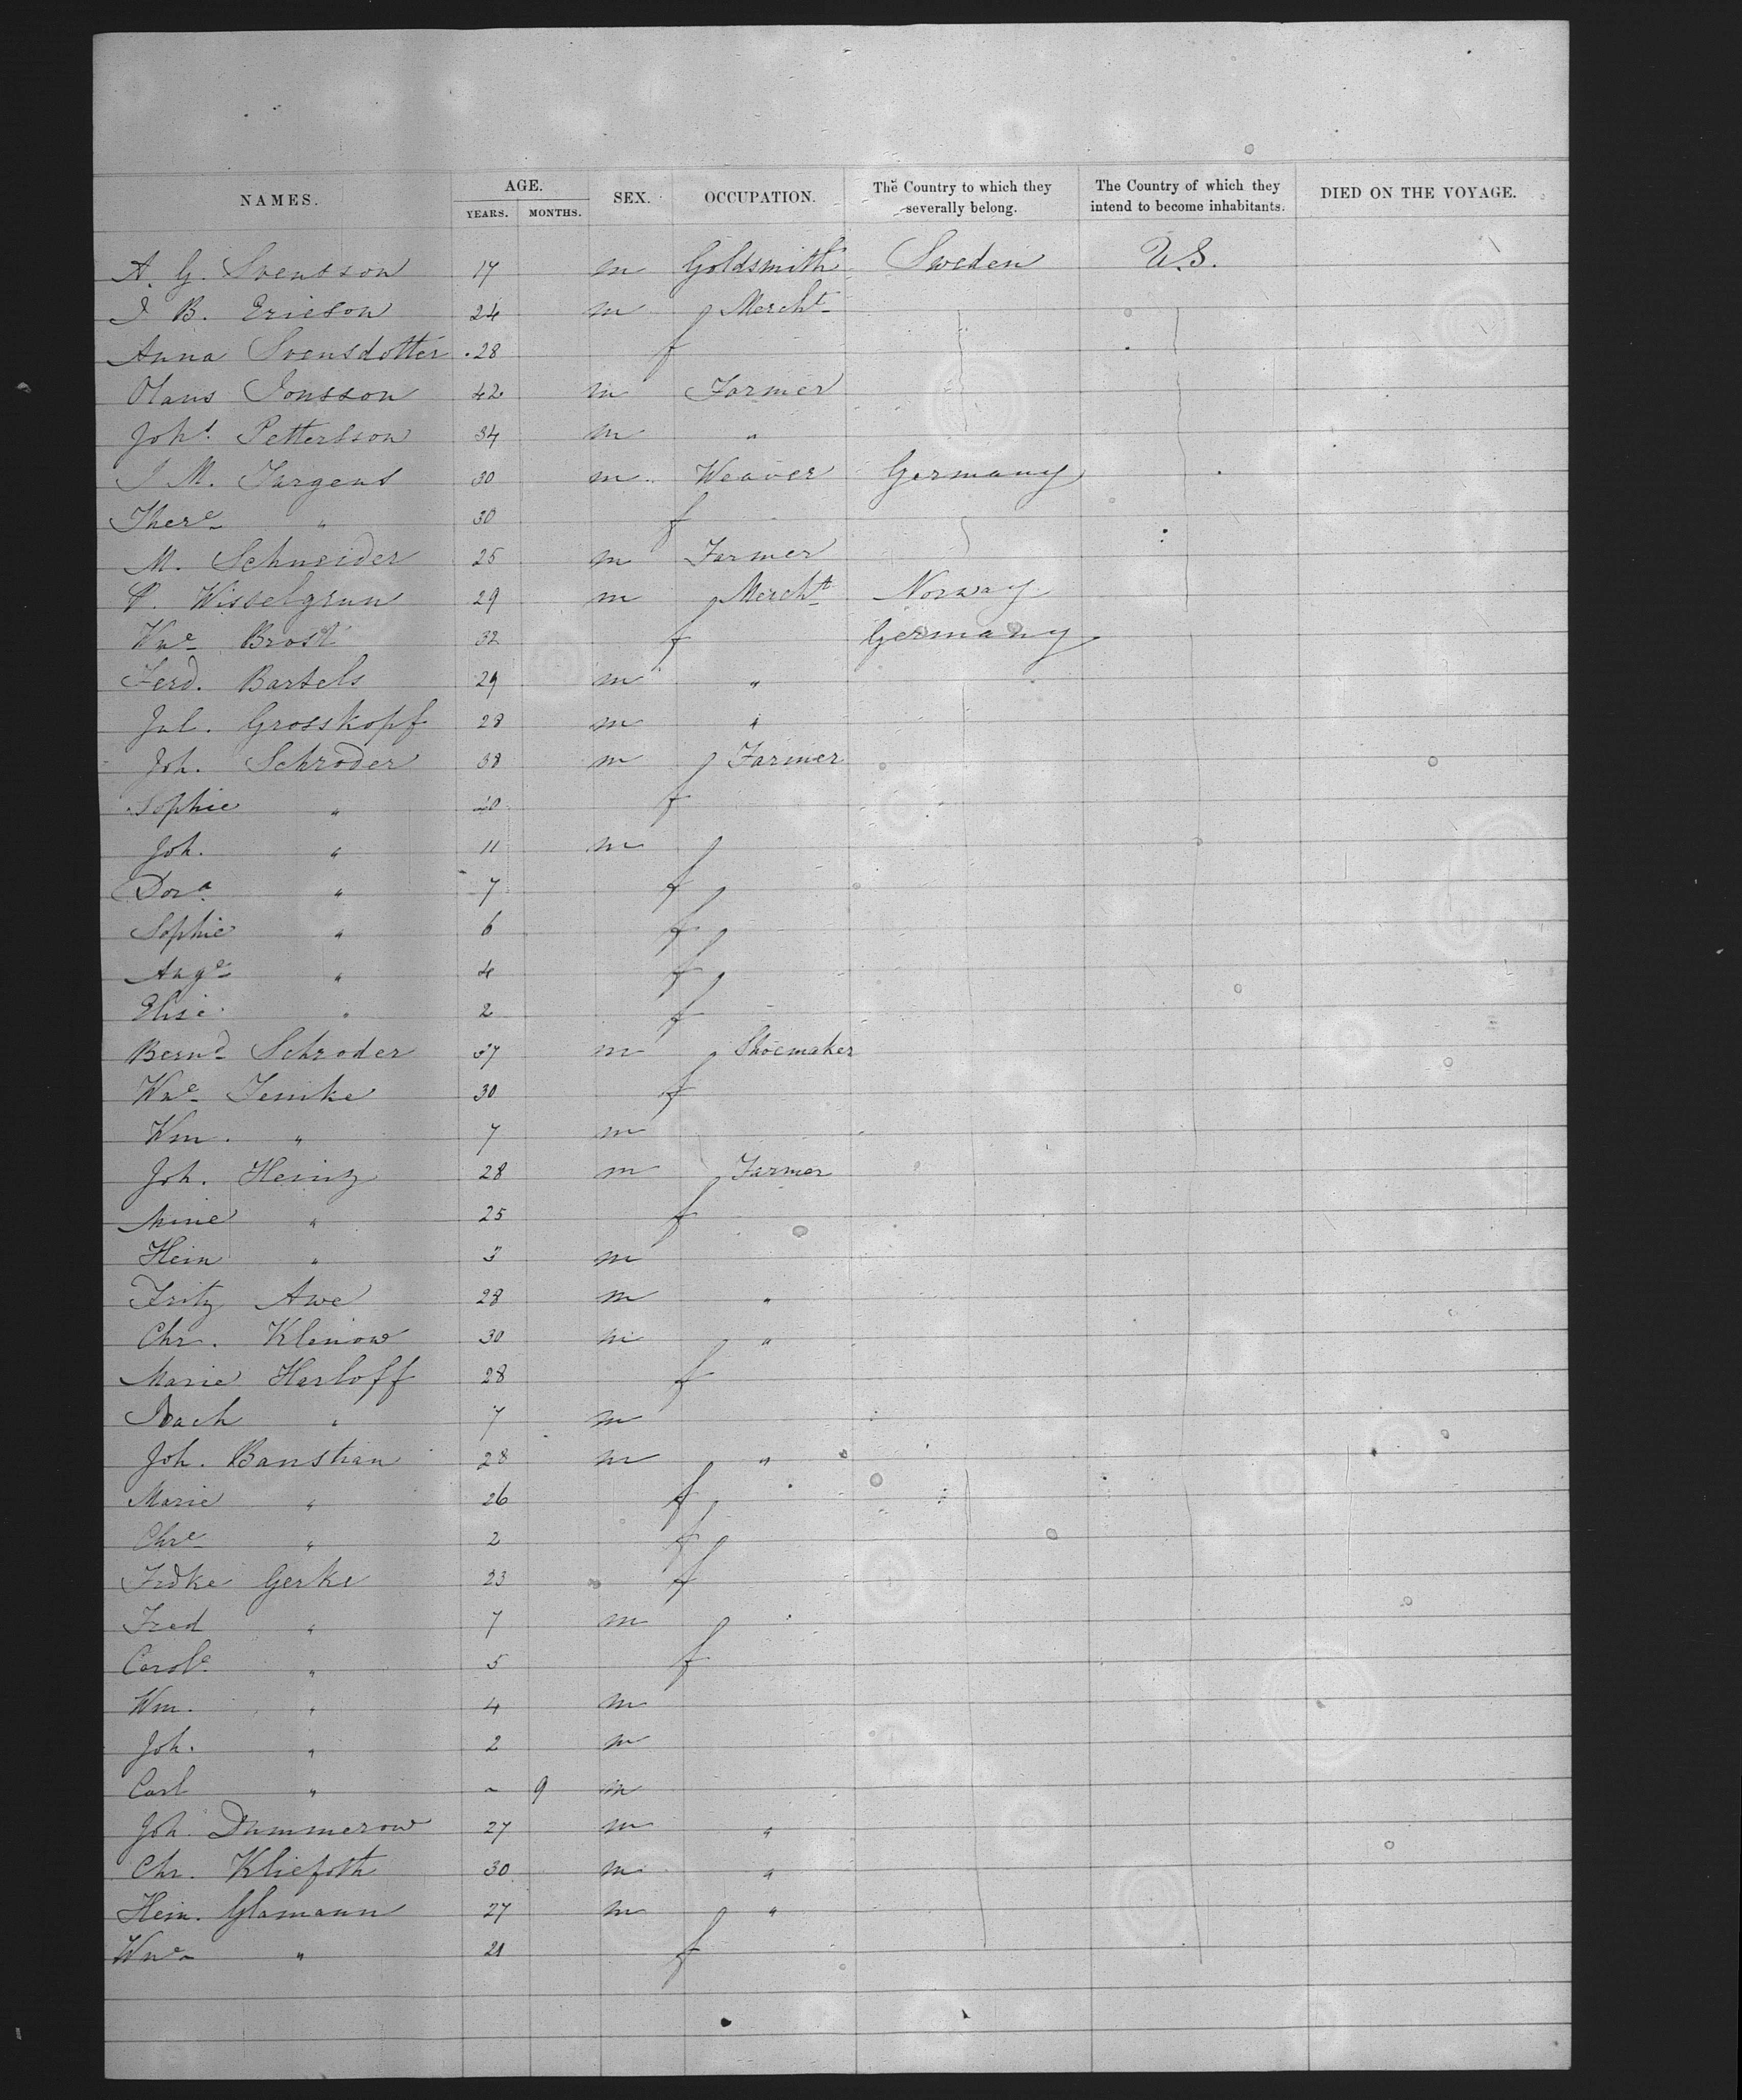 NAMES. AGE. YEARS. MONTHS. SEX. OCCUPATION. The Country to which they severally belong. The Country of which they intend to become inhabitants. DIED ON THE VOYAGE.
A. G. Svensson 17 m Goldsmith Sweden U.S.
J B. Ericson 24 m Mercht
Anna Svensdotter 28 f
Olaus Jonsson 42 m Farmer
Joh. Pettersson 34 m "
J M. Jurgens 30 m Weaver Germany
There " 30 f
M. Schneider 25 m Farmer
P. Wisselgrun 29 m Mercht Norway
Wne Brost 32 f Germany
Ferd. Bartels 29 m "
Jul. Grosskopf 28 m "
Joh. Schroder 38 m Farmer
Sophie " 40 f
Joh. " 11 m
Dora " 7 f
Sophie " 6 f
Auge " 4 f
Elise " 2 f
Bernd Schroder 37 m Shoemaker
Wne Jenike 30 f
Wm. " 7 m
Joh. Heinz 28 m Farmer
Mine " 25 f
Hein " 3 m
Fritz Awe 28 m "
Chr. Klenow 30 m "
Marie Harloff 28 f
" 7 m
Joh. Banstian 28 m "
Marie " 26 f
Chre " 2 f
Frdke Gerke 23 f
Fred " 7 m
Carole " 5 f
Wm. " 4 m
Joh. " 2 m
Carl " - 9 m
Joh. Dummerow 27 m "
Chr. Kliefoth 30 m "
Hein. Glamann 27 m "
Wne " 21 f